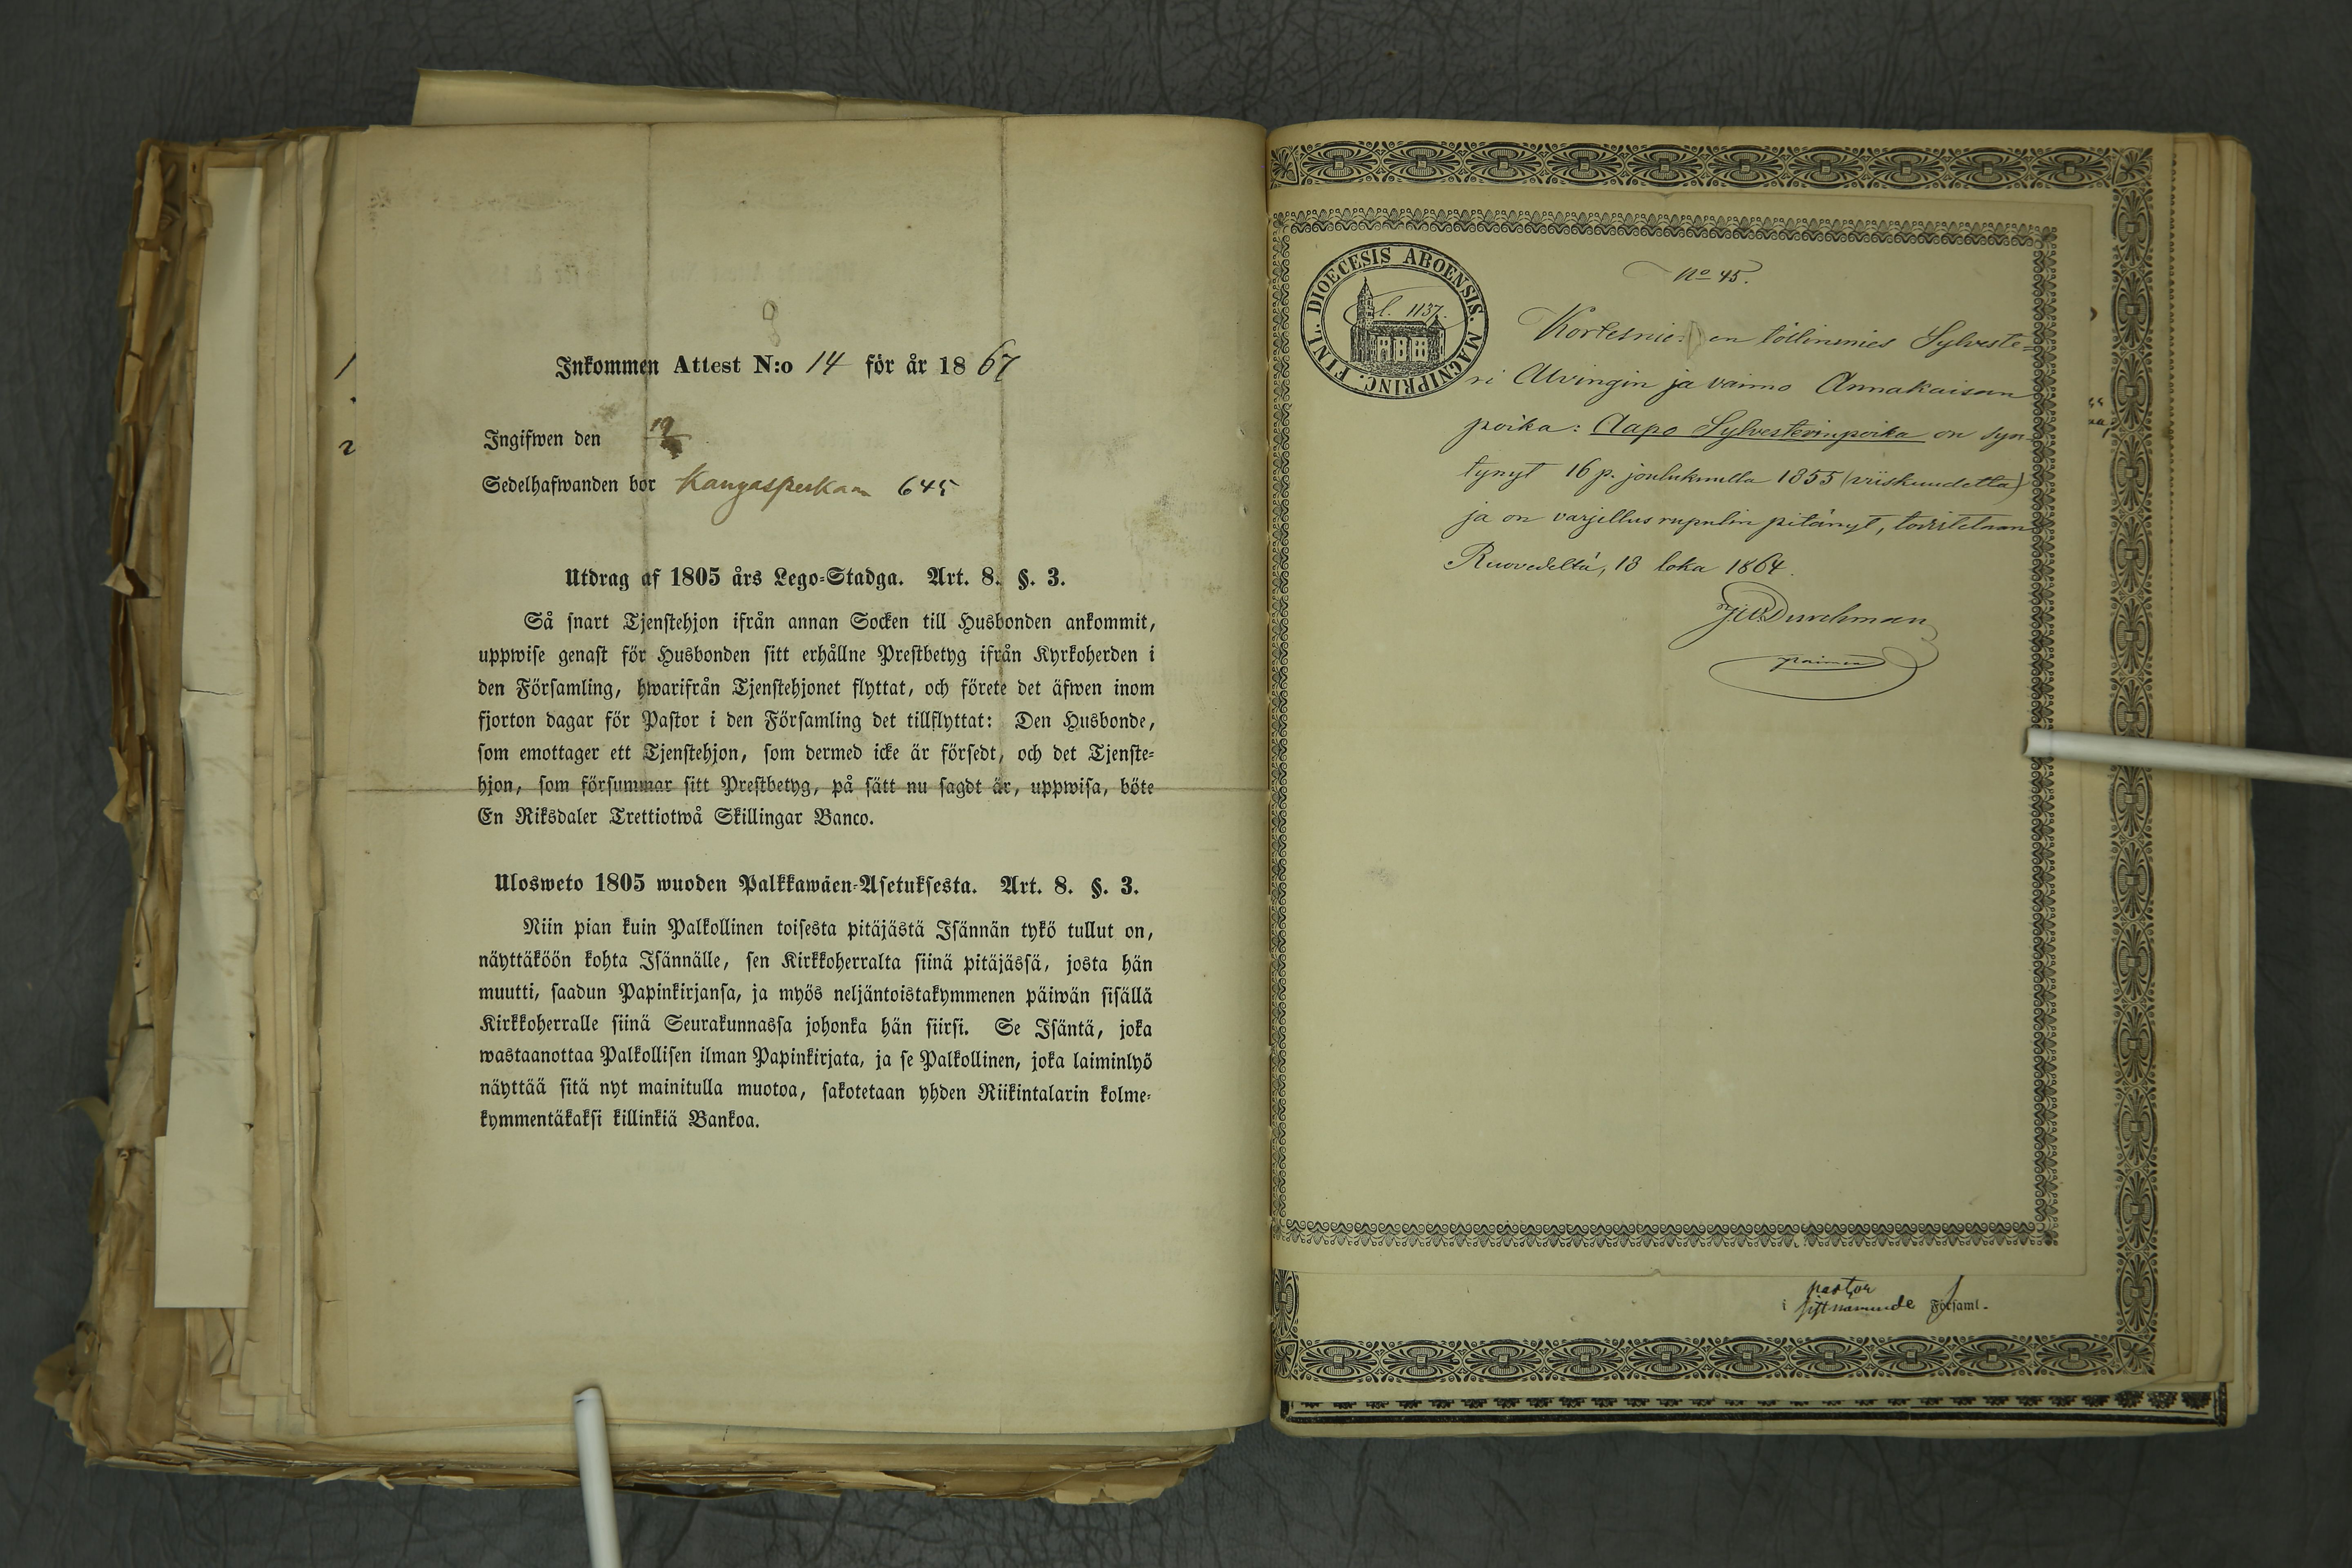 Inkommen Attest N:o 14 för år 1867
Ingifwen den 12/
Sedelhafwanden bor Kangasperkaa 645
Utdrag af 1805 års Lego-Stadga. Art. 8. §. 3.
Så snart Tjenstehjon ifrån annan Socken till Husbonden ankommit,
uppwise genast för Husbonden sitt erhållne Prestbetyg ifrån Kyrkoherden i
den Församling, hwarifrån Tjenstehjonet flyttat, och förete det äfwen inom
fjorton dagar för Pastor i den Församling det tillflyttat: Den Husbonde,
som emottager ett Tjenstehjon, som dermed icke är försedt, och det Tjenste-
hjon, som försummar sitt Prestbetyg, på sätt nu sagdt är, uppwisa, böte
En Riksdaler Trettiotwå Skillingar Banco.
Ulosweto 1805 wuoden Palkkawäen-Asetuksesta. Art. 8. §. 3.
Niin pian kuin Palkollinen toisesta pitäjästä Isännän tykö tullut on,
näyttäköön kohta Isännälle, sen Kirkkoherralta siinä pitäjässä, josta hän
muutti, saadun Papinkirjansa, ja myös neljäntoistakymmenen päiwän sisällä
Kirkkoherralle siinä Seurakunnassa johonka hän siirsi. Se Isäntä, joka
wastaanottaa Palkollisen ilman Papinkirjata, ja se Palkollinen, joka laiminlyö
näyttää sitä nyt mainitulla muotoa, sakotetaan yhden Riikintalarin kolme-
kymmentäkaksi killinkiä Bankoa.
1
2
DIOECESIS ABOENSIS. MAGNIPRINC. FINL.
l. 1137.
No 45.
en töllinmies Sylveste-
ri Alvingin ja vaimo Annakaisan
poika: Aapo Sylvesterinpoika on syn-
tynyt 16 p. joulukuulla 1855 (viiskuudetta)
ja on varjellus rupulin pitänyt, todistetaan
Ruovedeltä, 13 loka 1864.
Durchman
paimen
pastor
i sittnämnde Församl.